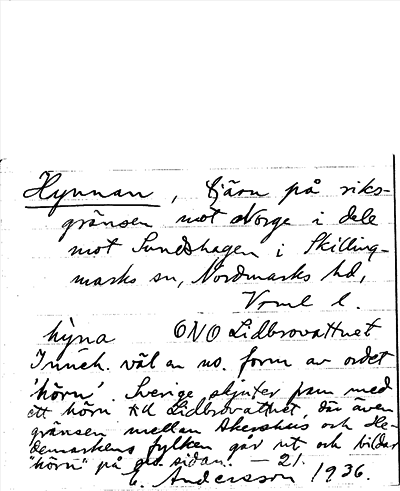 Hynnan, tjärn på riks-
gränsen mot Norge i dele
mot Sundshagen i Skilling-
marks sn, Nordmarks hd,
Vrml l.
hy̌na ONO Lidbrovattnet
Inneh. väl en no. form av ordet
'hörn'. Sverige skjuter fram med
ett hörn till Lidbrovattnet, där även
gränsen mellan Akershus och He-
demarkens fylken går ut och bildar
"hörn" på sidan. – 21.
E. Andersson 1936.